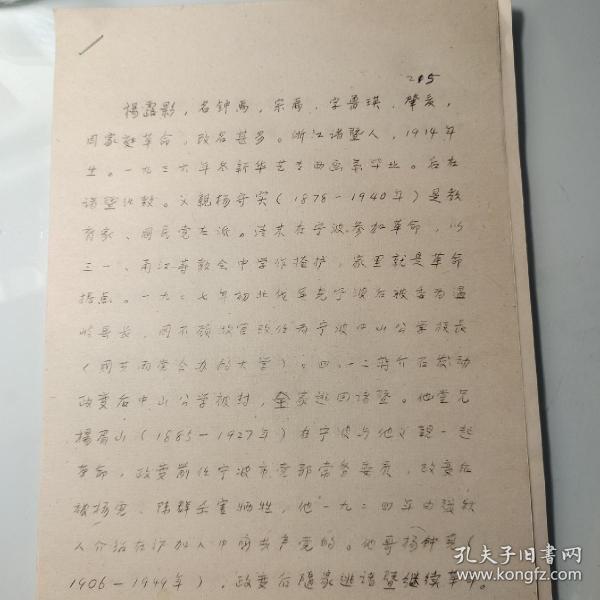 215
楊露影，名钟禹，宗禹，字鲁琪，肇亥，
因家庭革命，改名甚多。浙江诸暨人，1914年
生。一九三六年冬新华艺专西画系毕业。后在
诸暨任教。父親杨守实（1878—1940年）是教
育家、国民党左派。清末在宁波参加革命，以
三一、甬江等教会中学作掩护，家里就是革命
据点。一九二七年初北伐军克宁波后被委为温
岭县长，因不愿放官改任为宁波中山公学校长
（国共两党合办的大学）。四·一二蒋介石发动
政变后中山公学被封，全家逃回诸暨。他堂兄
楊眉山（1885—1927年）在宁波与他父親一起
革命，政变前任宁波市党部常务委员，政变后
被杨虎、陈群杀害牺牲，他一九二四年由
人介绍在沪加入中国共产党的。他哥杨钟英（
1906—1949年），政变后随家逃诸暨继续革命。
孔夫子旧书网
kongfz.com